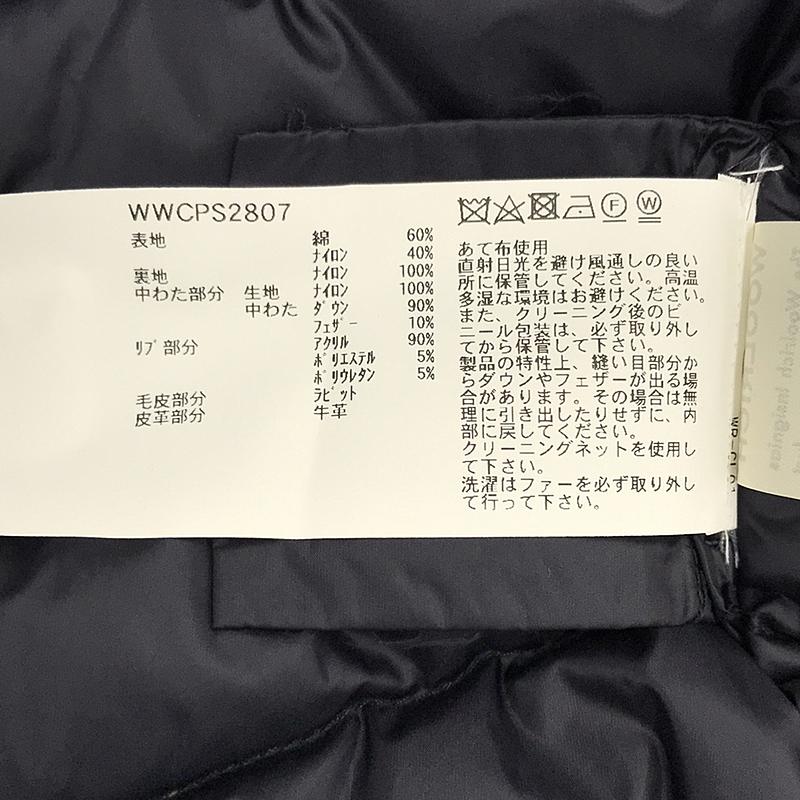 WWCPS2807
表地 綿 60%
ナイロン 40%
裏地 ナイロン 100%
中わた部分 生地 ナイロン 100%
中わた ダウン 90%
フェザー 10%
リブ部分 アクリル 90%
ポリエステル 5%
ポリウレタン 5%
毛皮部分 ラビット
皮革部分 牛革
F W
あて布使用
直射日光を避け風通しの良い
所に保管してください。高温
多湿な環境はお避けください。
また、クリーニング後のビ
ニール包装は、必ず取り外し
てから保管して下さい。
製品の特性上、縫い目部分か
らダウンやフェザーが出る場
合があります。その場合は無
理に引き出したりせずに、内
部に戻してください。
クリーニングネットを使用し
て下さい。
洗濯はファーを必ず取り外し
て行って下さい。
The Woolrich Insignias